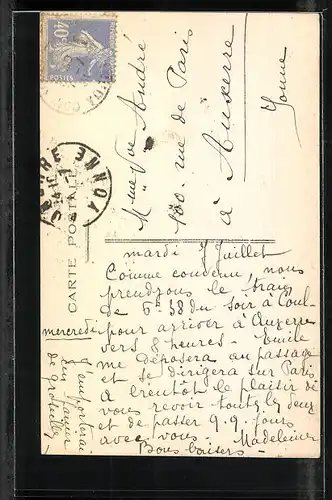 40c
POSTES
CARTE POSTALE
YONNE
Mme Vve André
100 rue de Paris
à Auxerre
Yonne
mardi 9 Juillet
Comme convenu, nous
prendrons le train
de 6h 38 du soir à Coul-
mercredi
pour arriver à Auxerre
vers 8 heures - Emile
me déposera au passage
et se dirigera sur Paris
à bientôt le plaisir de
vous revoir toutes les deux
et de passer q.q. jours
avec vous. Madeleine
Bons baisers -
J'emporterai
un panier
de